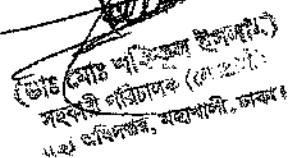 (ডাঃ মোঃ শফিকুল ইসলাম)
সহকারী পরিচালক
অধিদপ্তর, মহাখালী, ঢাকা।